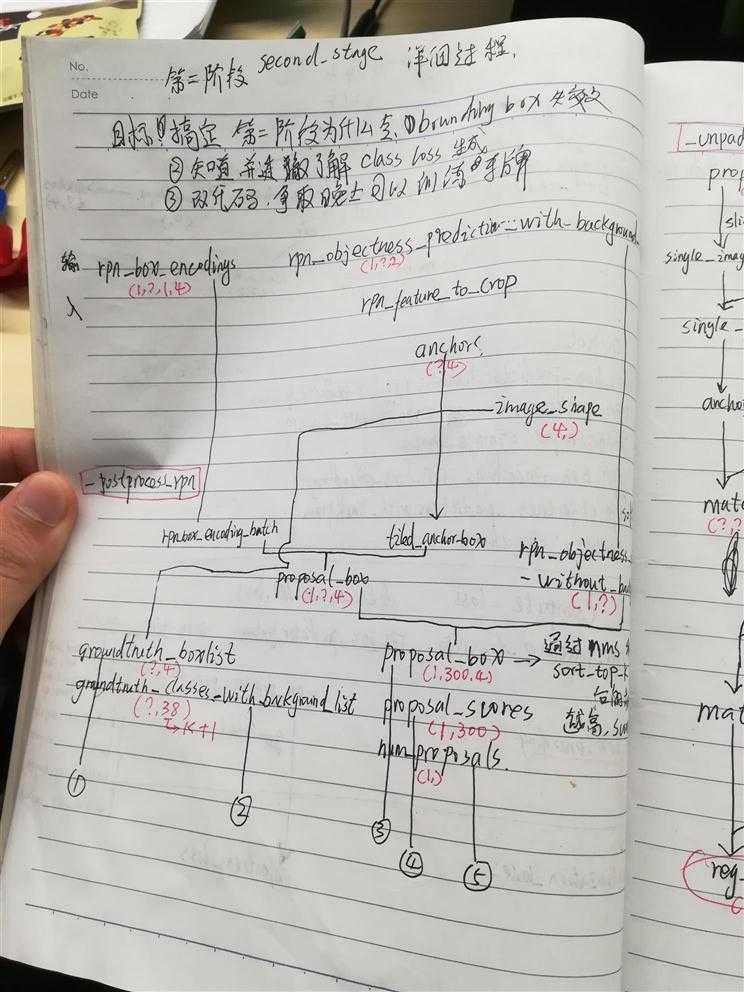 No.
Date
第二阶段 second_stage 详细过程.
目标: 搞定 第二阶段为什么 ① bounding box
② 知道 并 了解 class loss 生成
③ 改代码, 争取晚上可以训练 车牌
输入
rpn_box_encodings
(1,?,1,4)
rpn_objectness_prediction_with_background
(1,?,2)
rpn_feature_to_crop
anchors
(?,4)
image_shape
(4,)
_postprocess_rpn
rpn_box_encoding_batch
tiled_anchor_box
rpn_objectness
- without_
(1,?)
proposal_box
(1,?,4)
groundtruth_boxlist
(?,4)
groundtruth_classes_with_background_list
(?,38)
↳ K+1
proposal_box → 通过 nms
(1,300,4)
sort_top_
proposal_scores
(1,300)
越高,
num_proposals.
(1,)
①
②
③
④
⑤
_unpad
prop
single_imag
single_
ancho
mat
(?,?
mat
reg_